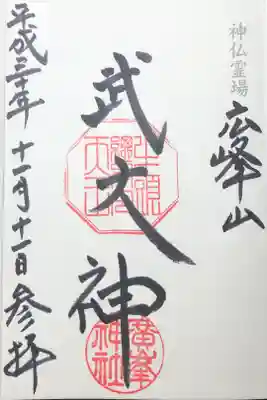 神仏霊場
広峯山
武大神
廣峯
神社
平成三十年十一月十一日参拝